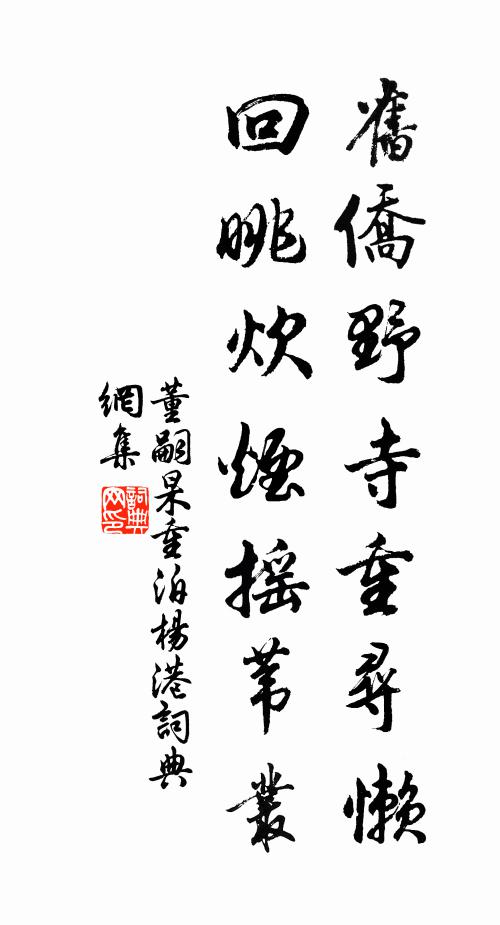 舊僑野寺重尋懶
回眺炊煙搖苇叢
董嗣杲重泊楊港詞典
網集
詞典
网印